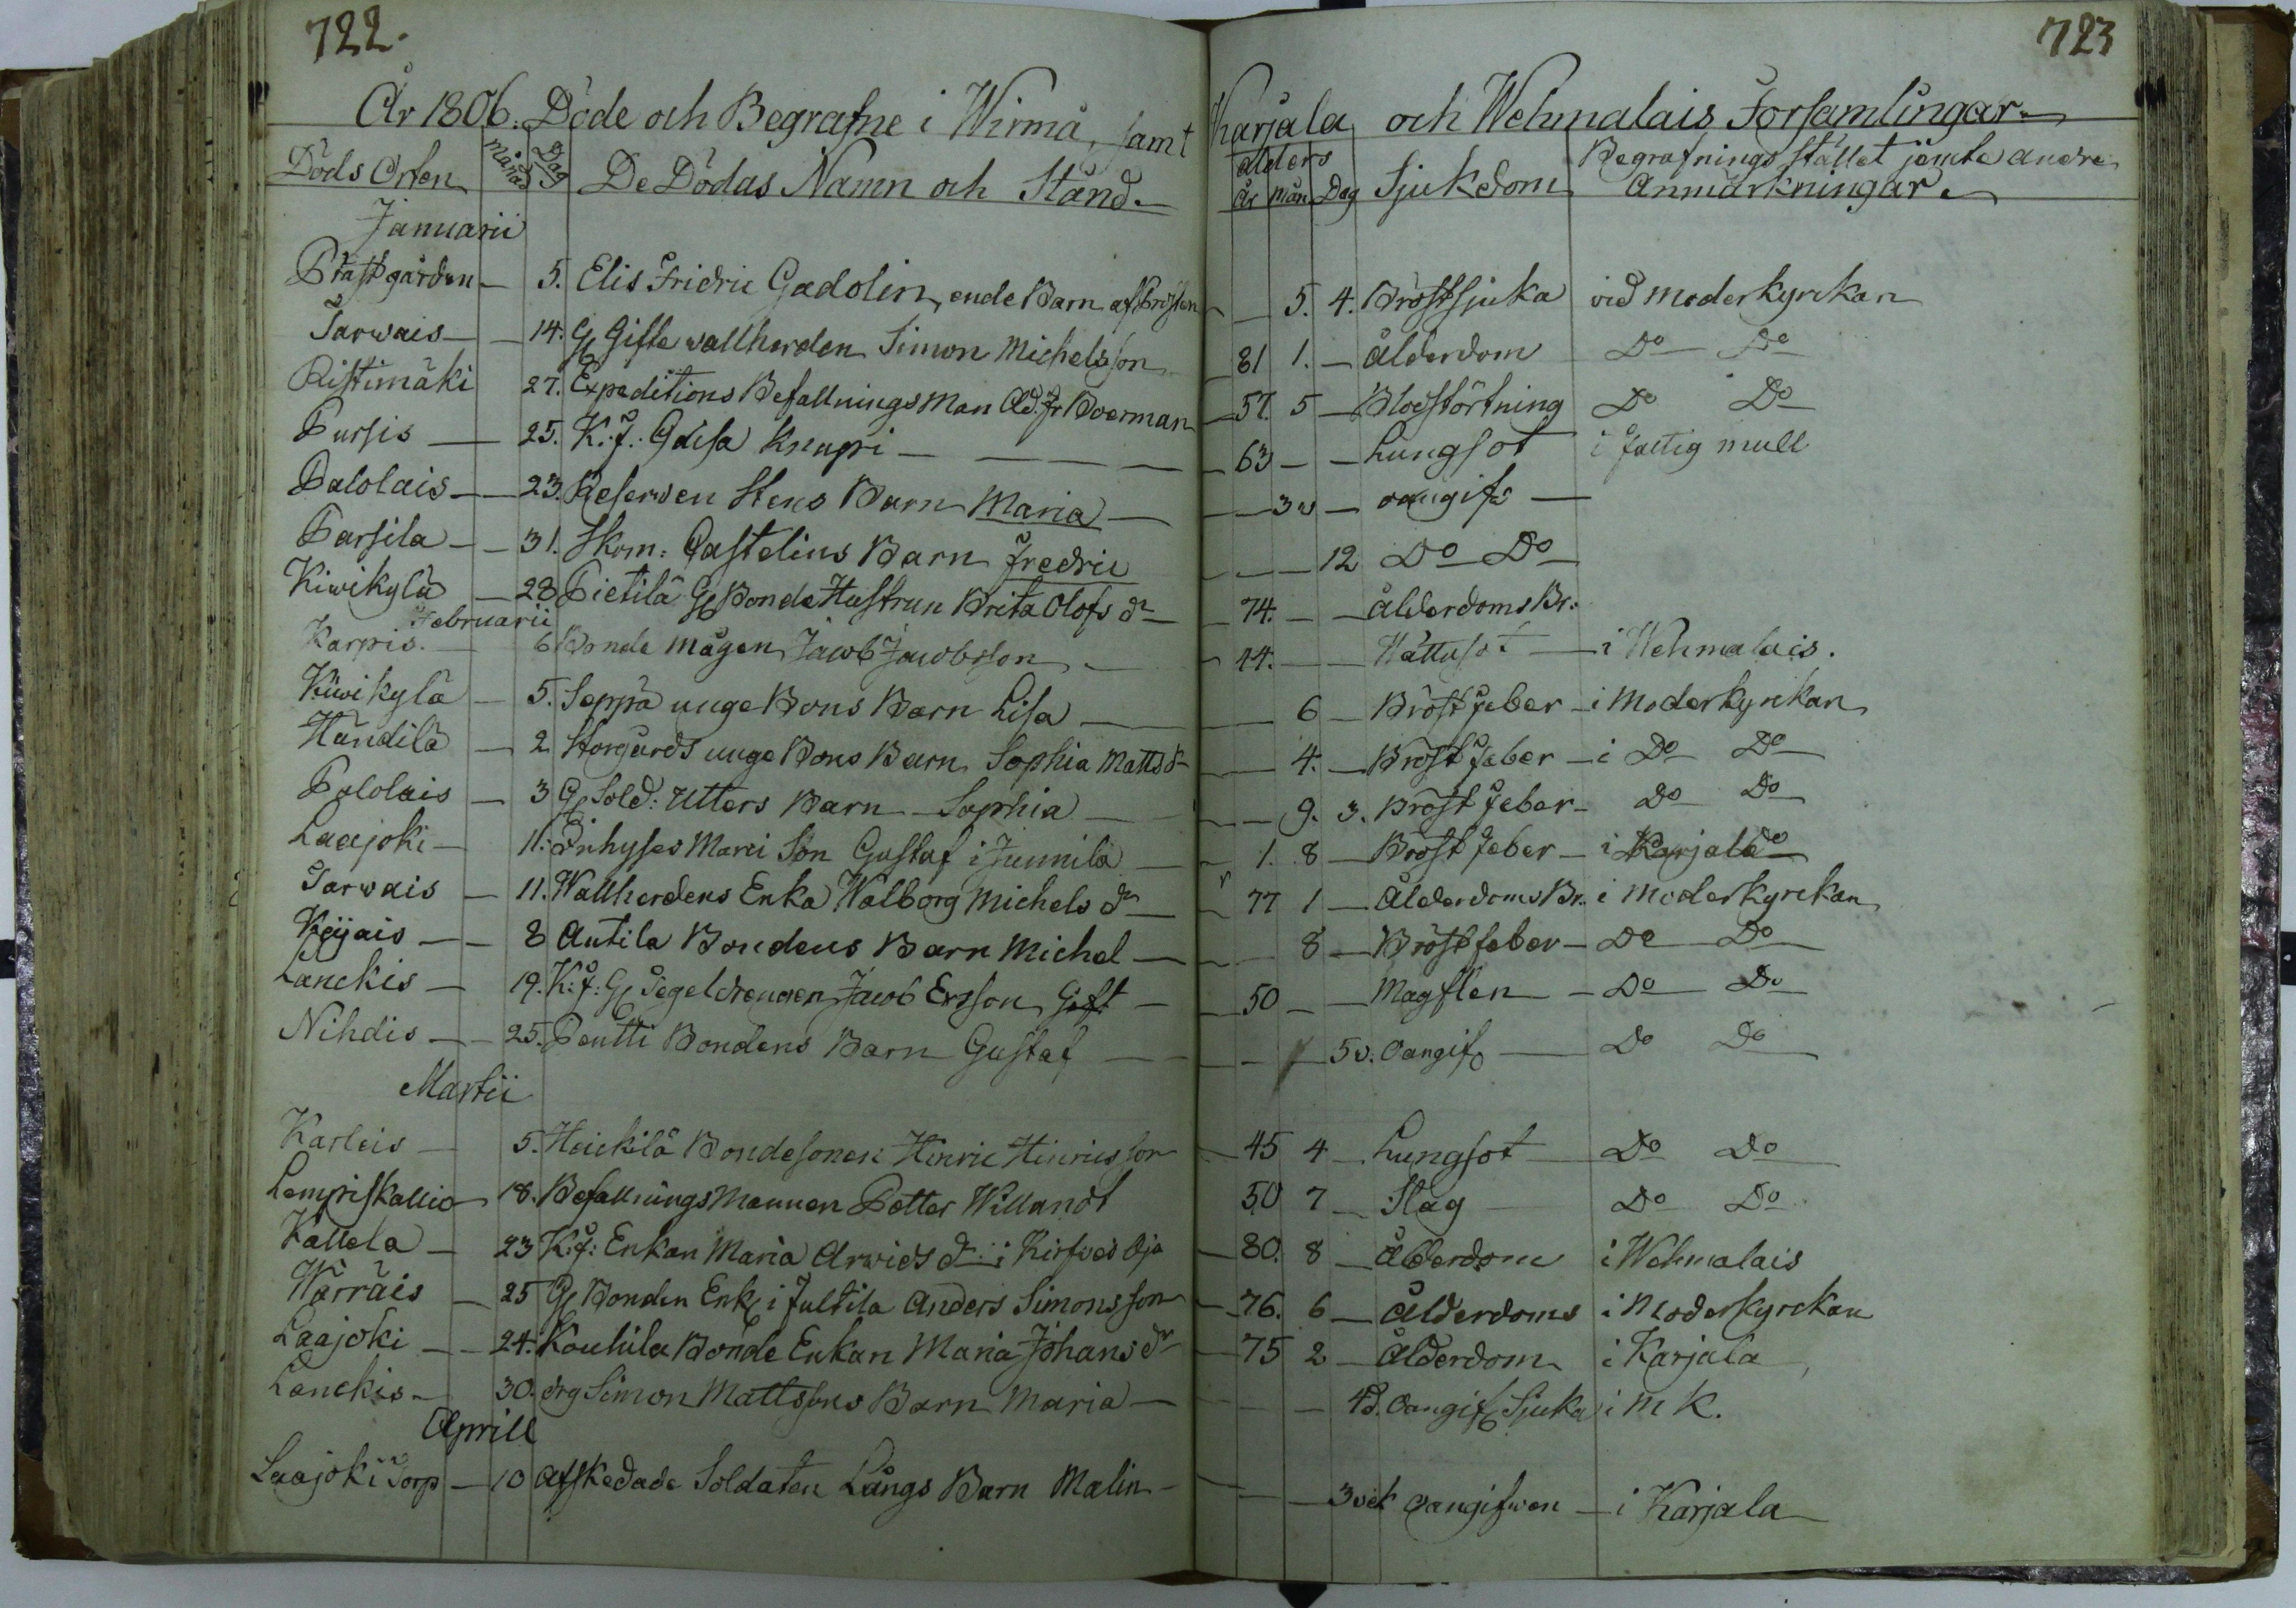 722.
723
År 1806. Döde och Begrafne i Wirmå, samt Karjala och Wehmalais Församlingar.
Döds Orten Månad Dag De Dödas Namn och Stånd. ålders År Mån Dag Sjukdom Begrafnings stället jämte andre Anmärkningar.
Januarii
Prästgården — 5. Elis Fridric Gadolin, ende Barn af Prosten — 5. 4. Bröstsjuka vid Moderkyrckan
Tarwais — 14. G Gifte wallherden Simon Michelsson 81 1. — ålderdom Do Do
Ristimäki 27. Expeditions Befallnings Man Ad. Fr Boerman 57. 5 — Blodstörtning Do Do
Pursis — 25. K. f. Caisa Knapri — 63 — — Lungsot i fattig mull
Palolais — 23. Reserven Stens Barn Maria — 3 v — oangifv —
Parsila — 31. Skom: Castelins Barn Fredric — 12 Do Do
Kiwikylä — 28 Pietilä G Bonde Hustrun Brita Olofs dr — 74. — — ålderdoms Br.
Februarii
Karpis. — 6 Bonde Mågen Jacob Jacobsson — 44. — — Wattusot — i Wehmalais.
Kiwikylä — 5. Seppä unge Bons Barn Lisa — 6 — Bröstfeber — i Moderkyrckan
Händilä — 2 Storgårds unge Bons Barn Sophia Matts dr — 4. — Bröstfeber — i Do Do
Palolais — 3 G Sold: Utters Barn Sophia — 9. 3. Bröstfeber — Do Do
Laajoki — 11. Inhyses Marci Son Gustaf i Junnila — 1. 8 — Bröstfeber — i Karjala
Tarwais — 11. Wallherdens Enka Walborg Michels dr — 77 1 — Ålderdoms Br. i Moderkyrckan
Keijais — 8 Antila Bondens Barn Michel — 8 — Bröstfeber — Do Do
Lanckis — 19. K: f: G Tegeldrengen Jacob Ersson Gift — 50 — — Magflen — Do Do
Nihdis — 25. Pentti Bondens Barn Gustaf — 5 v. Oangif — Do Do
Martii
Karleis — 5. Heickilä Bondesonen Hinric Hinricsson — 45 4 — Lungsot — Do Do
Lempiskallio 18. Befallnings Mannen Petter Willandt 50 7 — Slag — Do Do
Kallela — 23 K: f: Enkan Maria Arvids dr i Kirfves Oja — 80. 8 — ålderdom i Wehmalais
Wärräis — 25 G Bonden Enk i Jultila Anders Simonsson — 76. 6 — Ålderdoms i Moderkyrckan
Laajoki — 24. Kouhila Bonde Enkan Maria Johans dr — 75 2 — Ålderdom i Karjala
Lanckis — 30. drg Simon Mattssons Barn Maria — 4 d. Oangif Sjuka i M K.
Aprill
Laajoki Torp — 10 Afskedade Soldaten Långs Barn Malin — 3 vek oangifwen — i Karjala